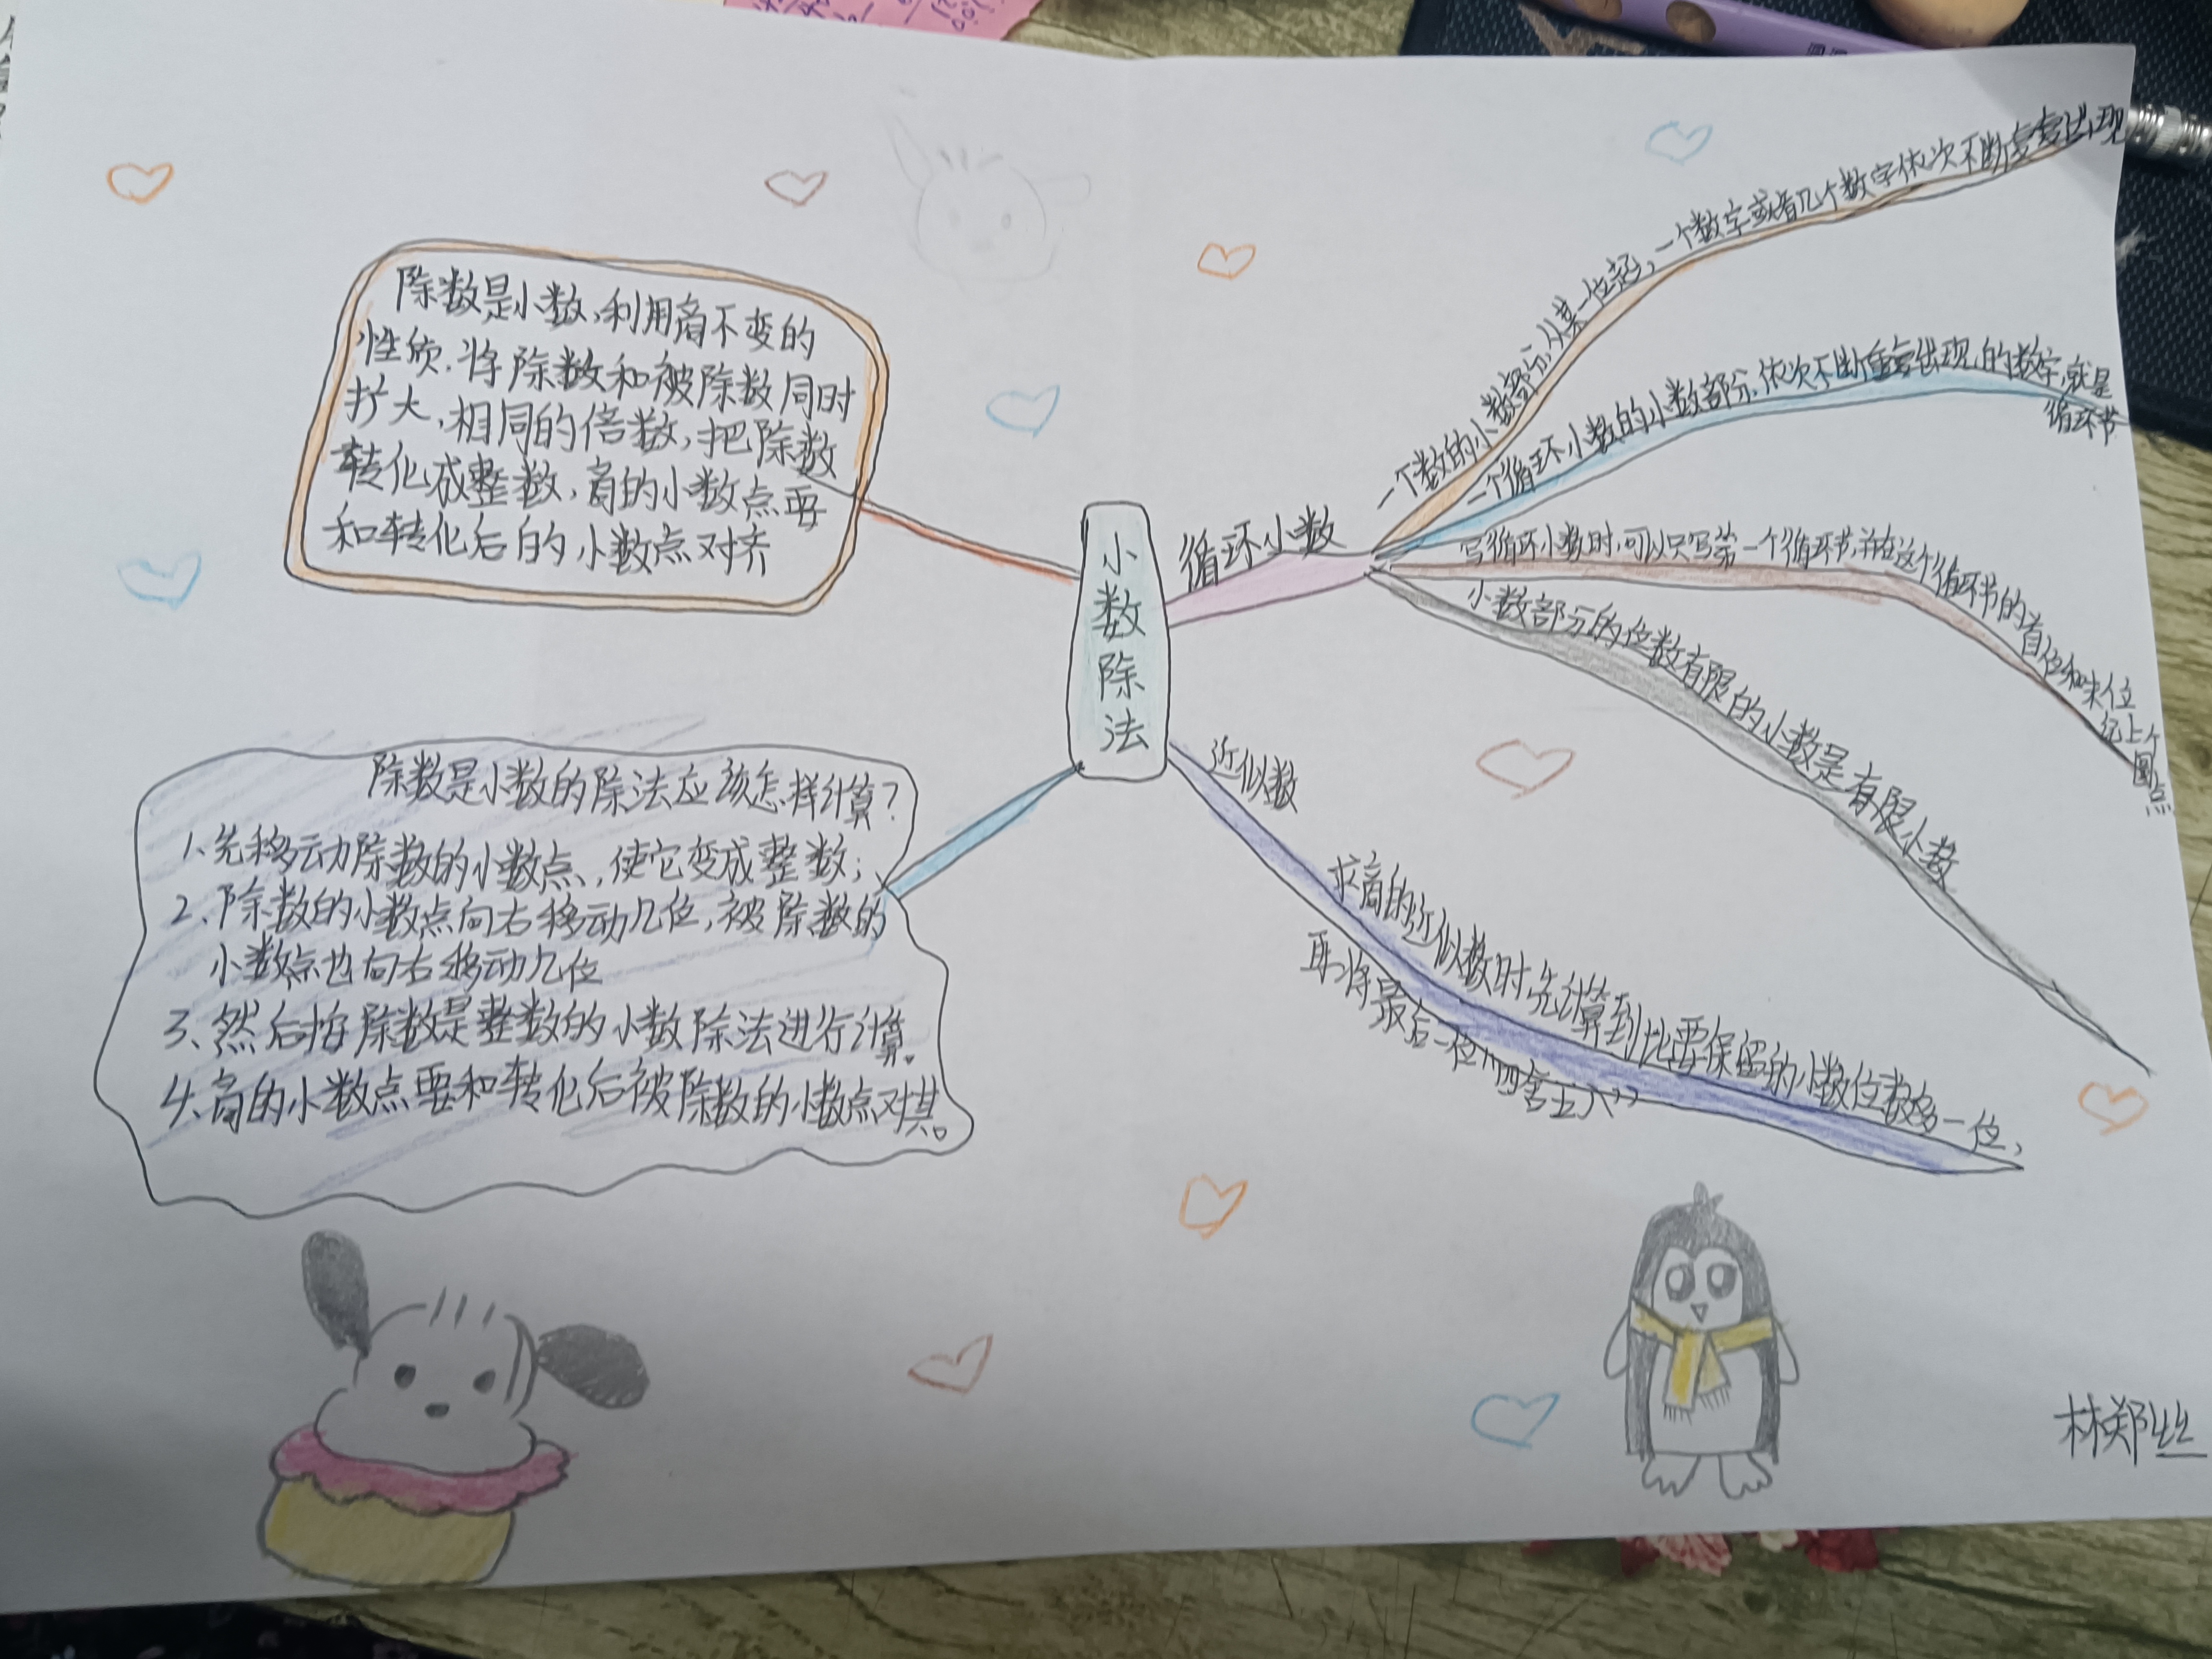 除数是小数,利用商不变的
性质.将除数和被除数同时
扩大,相同的倍数,把除数
转化成整数,商的小数点要
和转化后的小数点对齐
小数除法
循环小数
一个数的小数部分,从某一位起,一个数字或者几个数字依次不断重复出现
一个循环小数的小数部分,依次不断重复出现的数字,就是
循环节
写循环小数时,可以只写第一个循环节,并在这个循环节的首位和末位
记上个
圆点
小数部分的位数有限的小数是有限小数
近似数
求商的近似数时,先计算到比要保留的小数位数多一位,
再将最后一位“四舍五入”
除数是小数的除法应该怎样计算?
1、先移动除数的小数点,使它变成整数;
2、除数的小数点向右移动几位,被除数的
小数点也向右移动几位
3、然后按除数是整数的小数除法进行计算。
4、商的小数点要和转化后被除数的小数点对其。
林郑丝